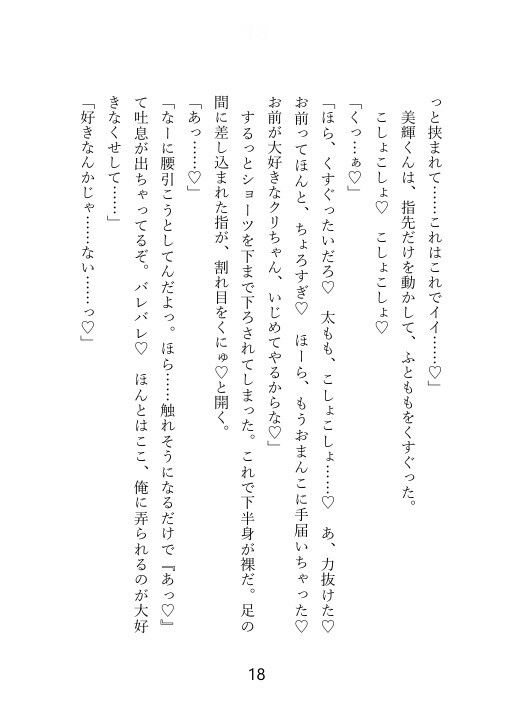 っと挟まれて……これはこれでイイ……♡」
美輝くんは、指先だけを動かして、ふとももをくすぐった。
こしょこしょ♡　こしょこしょ♡
「くっ…ぁ♡」
「ほら、くすぐったいだろ♡　太もも、こしょこしょ……♡　あ、力抜けた♡
お前ってほんと、ちょろすぎ♡　ほーら、もうおまんこに手届いちゃった♡
お前が大好きなクリちゃん、いじめてやるからな♡」
するっとショーツを下まで下ろされてしまった。これで下半身が裸だ。足の
間に差し込まれた指が、割れ目をくにゅ♡と開く。
「あっ……♡」
「なーに腰引こうとしてんだよっ。ほら……触れそうになるだけで『あっ♡』
て吐息が出ちゃってるぞ。バレバレ♡　ほんとはここ、俺に弄られるのが大好
きなくせして……」
「好きなんかじゃ……ない……っ♡」
18